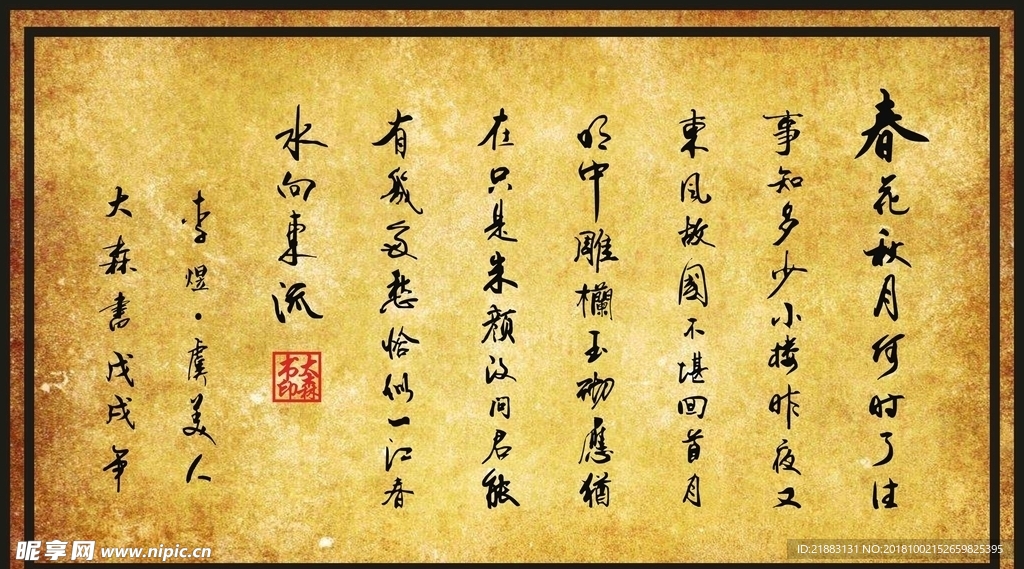 春花秋月何时了往
事知多少小楼昨夜又
東风故國不堪回首月
明中雕欄玉砌應猶
在只是朱颜改问君能
有幾多愁恰似一江春
水向東流
大森书印
李煜·虞美人
大森書戊戌年
昵享网 www.nipic.cn
ID:21883131 NO:20181002152659825395